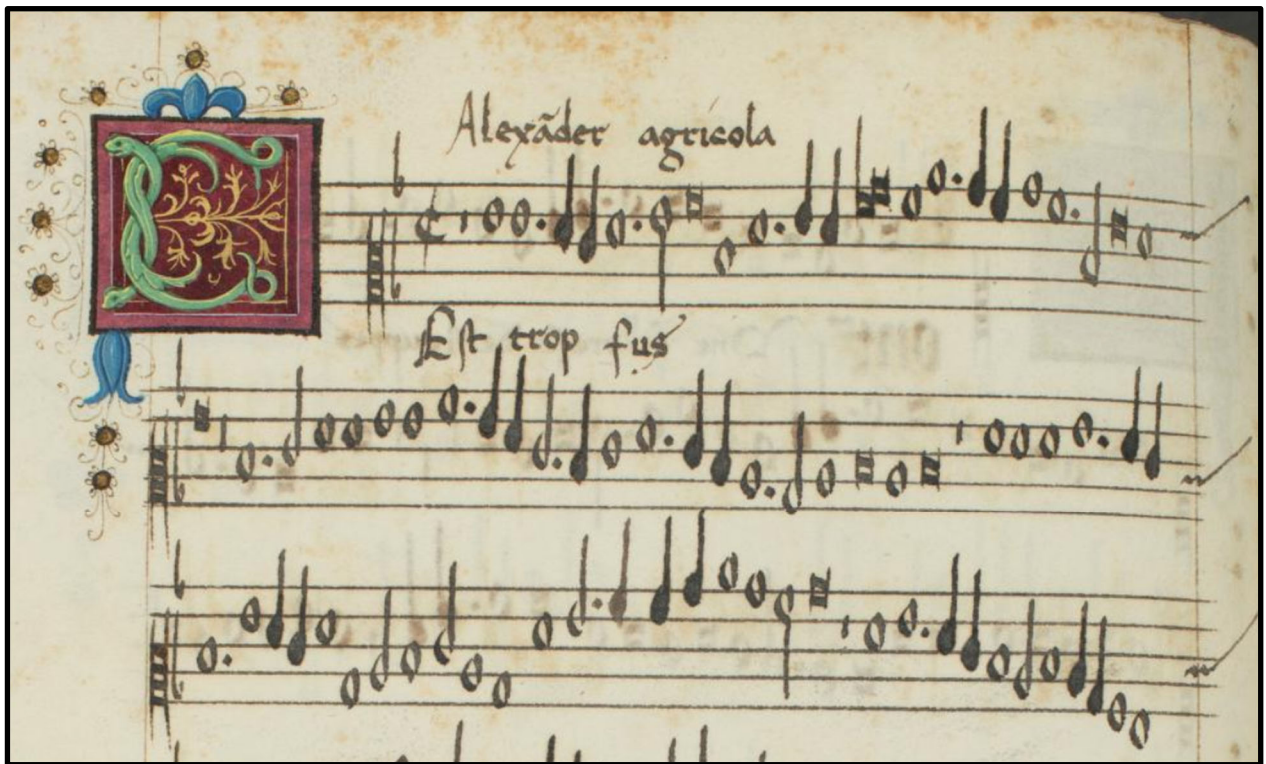 Alexãder agricola
C
Est trop sus